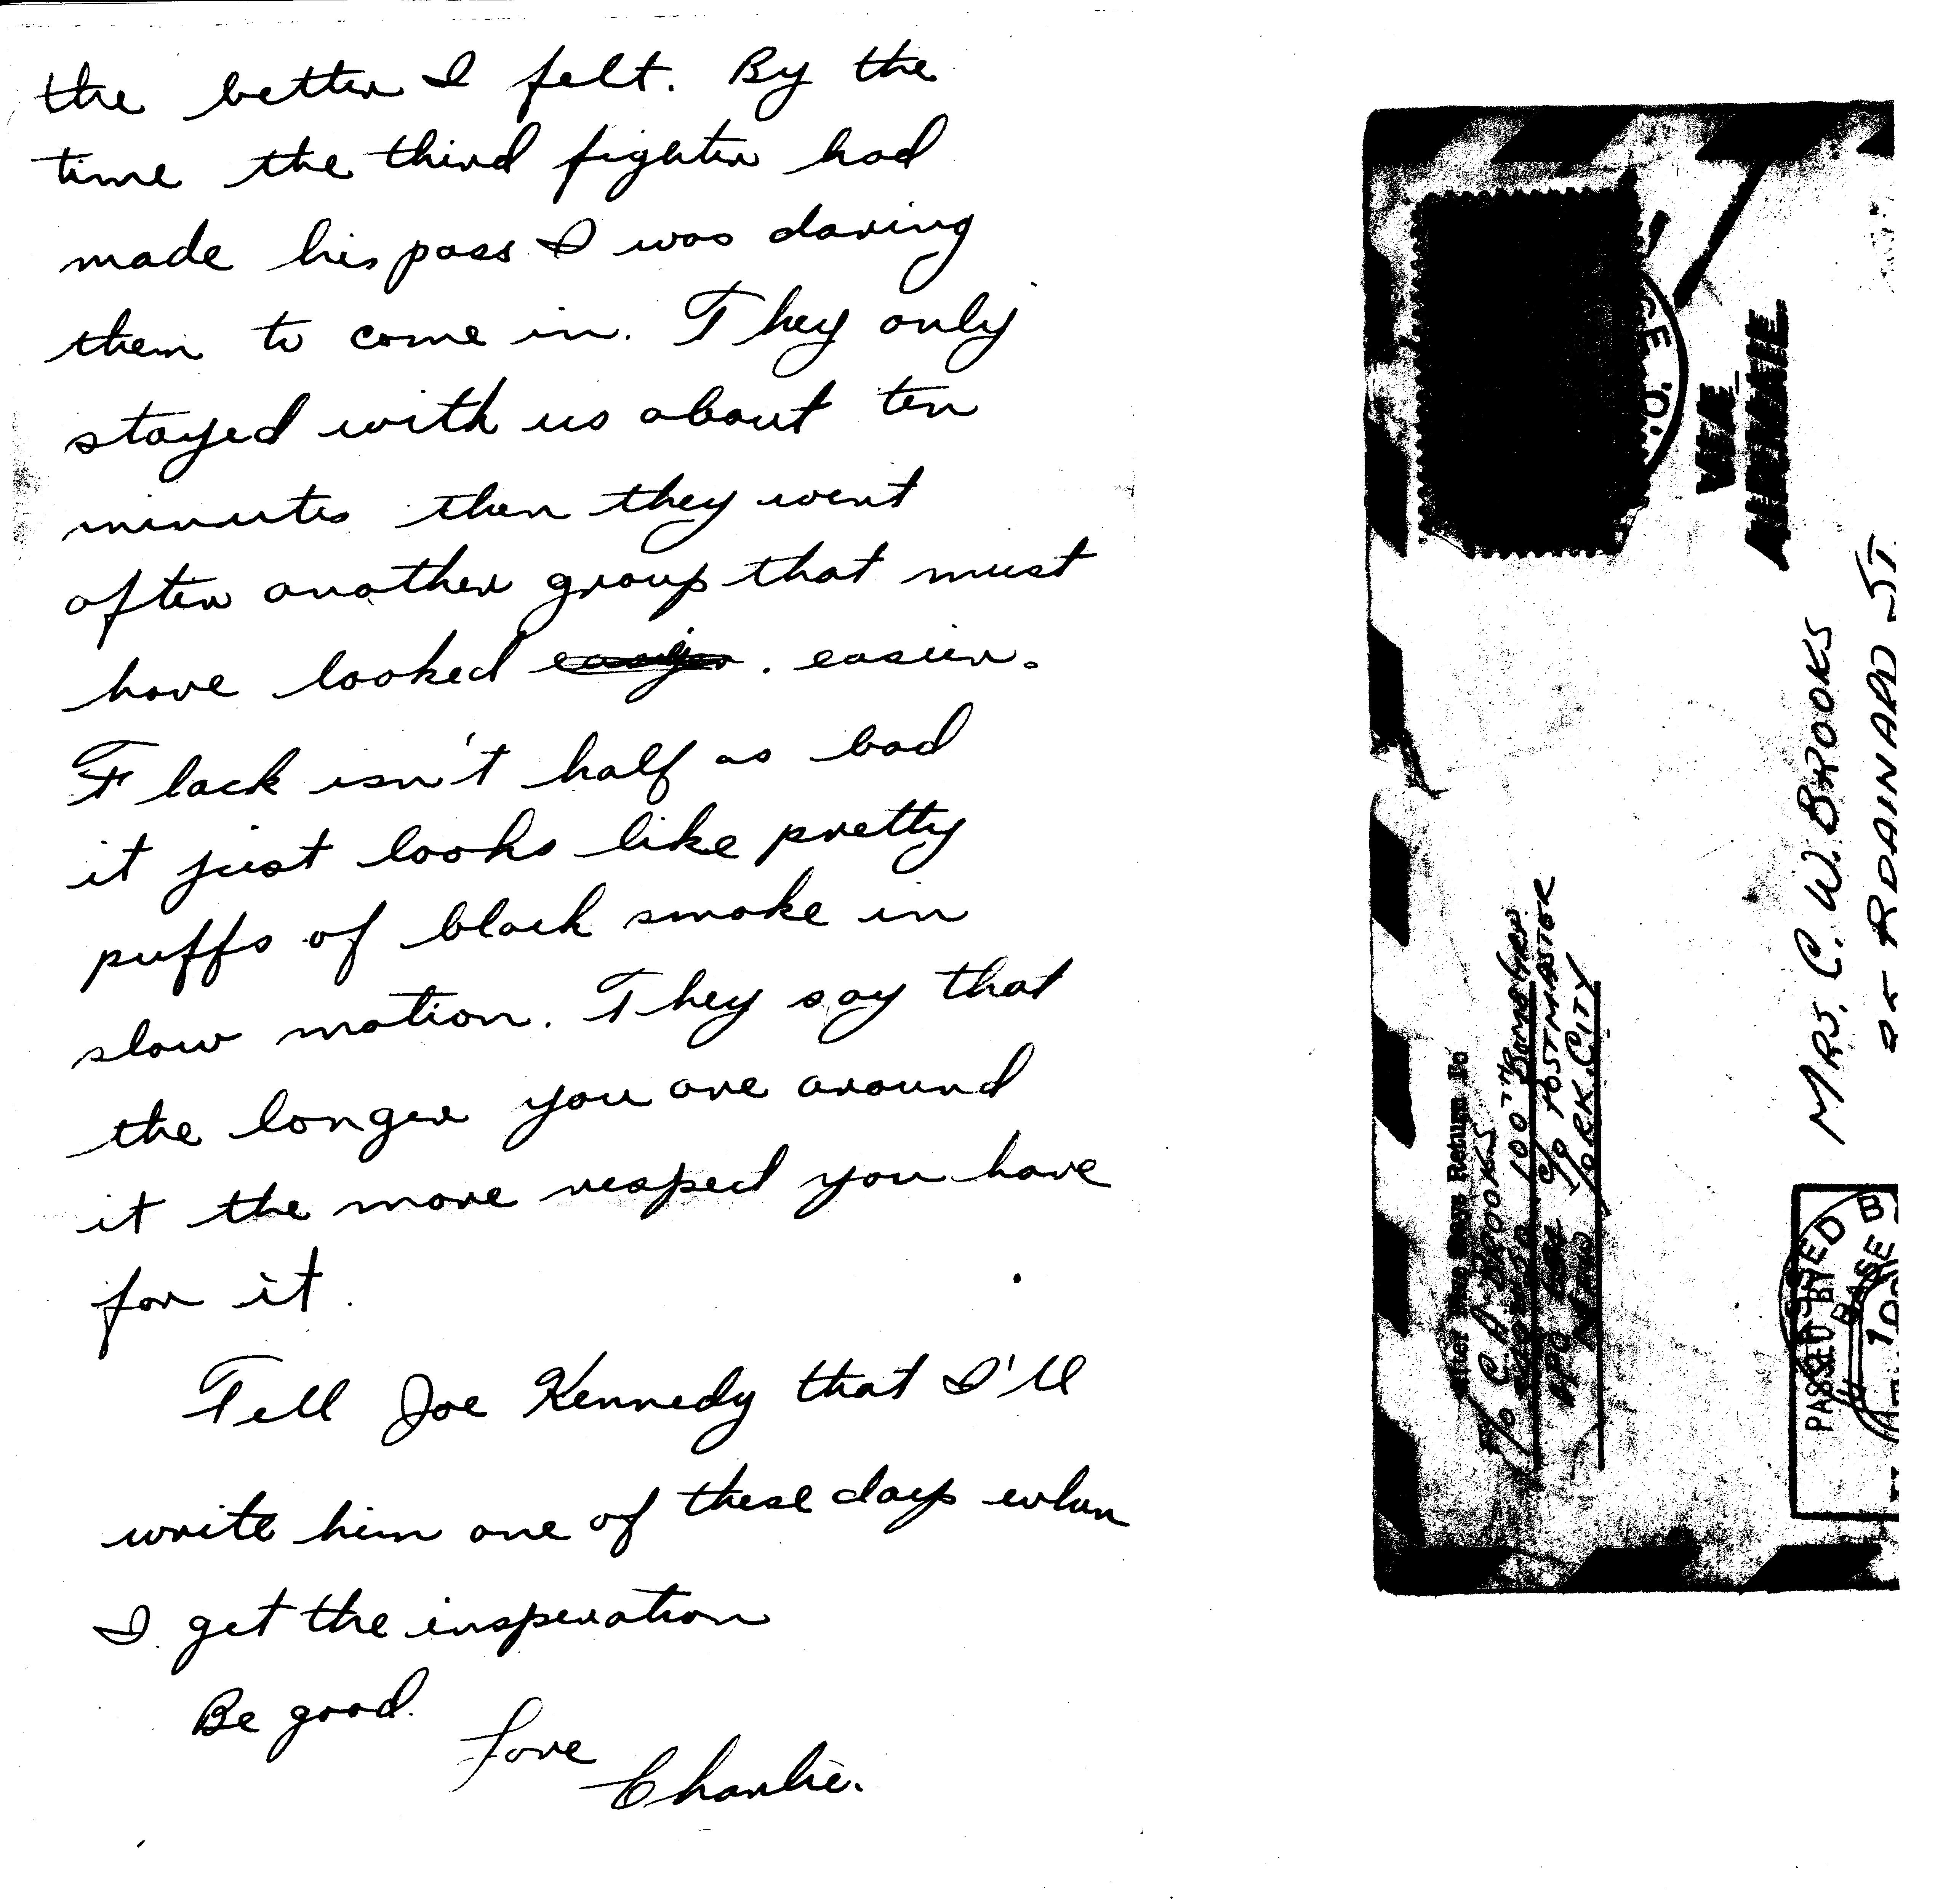 the better I felt. By the
time the third fighter had
made his pass I was daring
them to come in. They only
stayed with us about ten
minutes then they went
after another group that must
have looked . easier.
Flack isn't half as bad
it just looks like pretty
puffs of black smoke in
slow motion. They say that
the longer you are around
it the more respect you have
for it.
Tell Joe Kennedy that I'll
write him one of these days when
I get the insperation
Be good.
Love
Charlie.
VIA
AIRMAIL
MRS. C. W. BROOKS
ST.
After Days Return To
C A BROOKS
100TH BOMB GRP
APO C/O POSTMASTER
CITY
PASSED BY
BASE